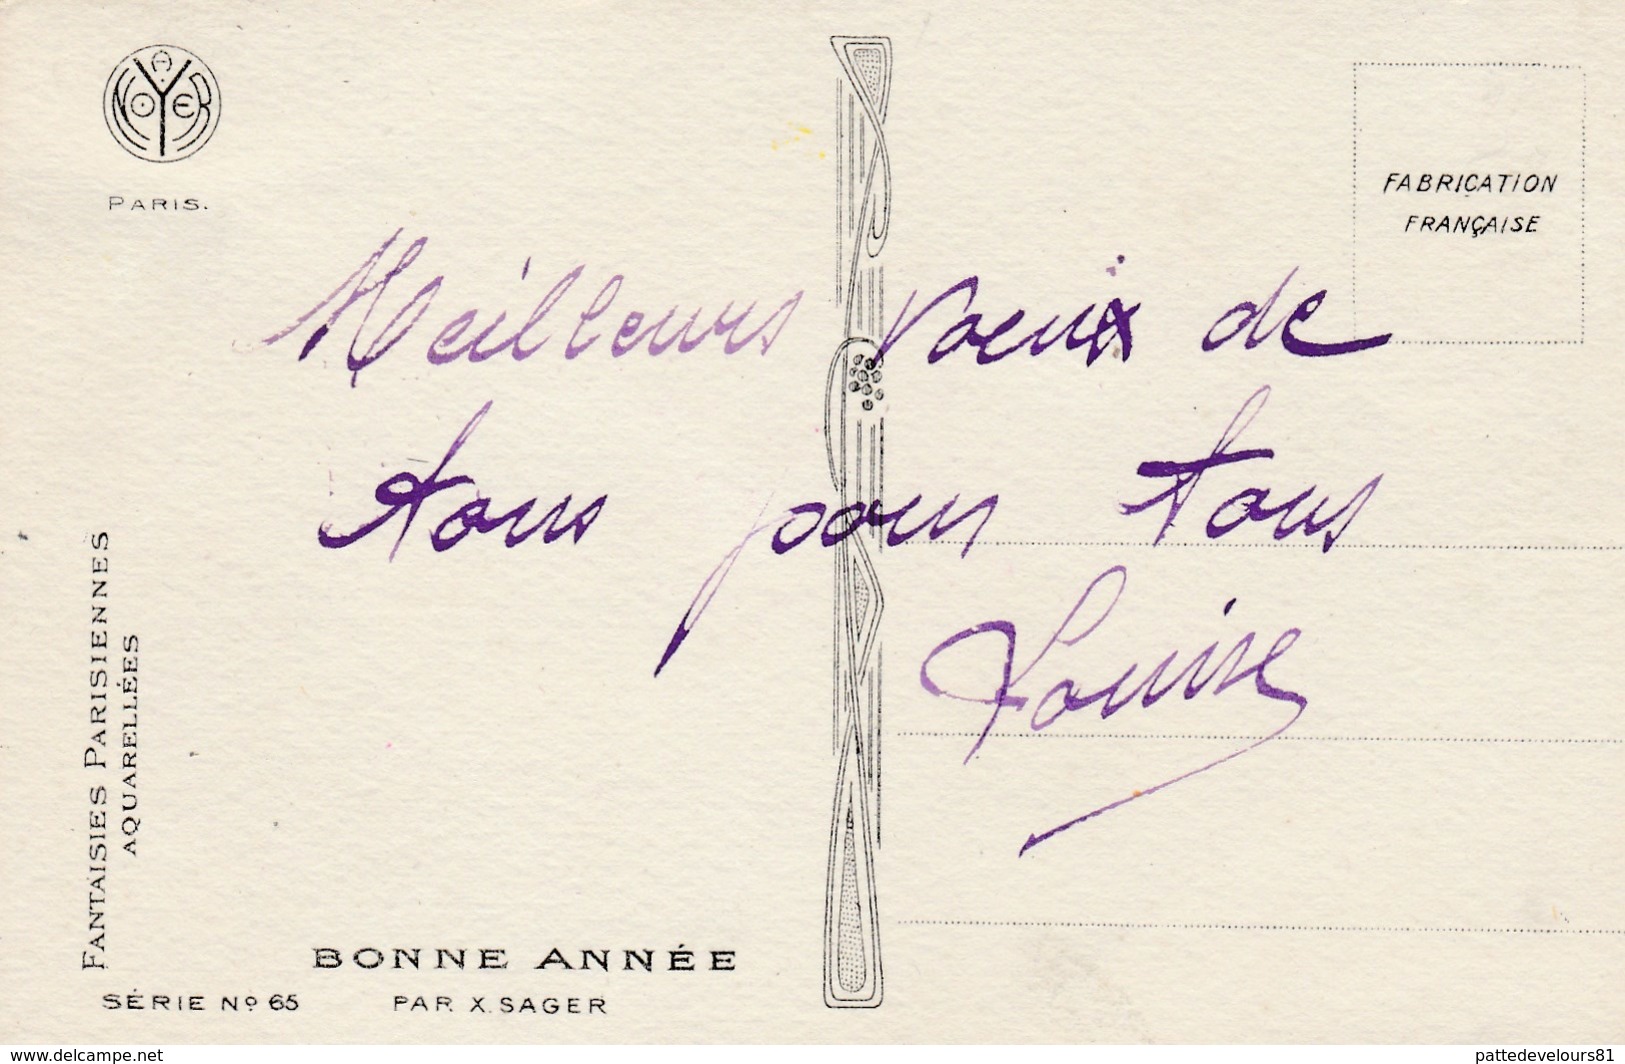 A NOYER
PARIS.
FABRICATION
FRANÇAISE
Meilleurs voeux de
tous pour tous
Louise
FANTAISIES PARISIENNES
AQUARELLÉES
BONNE ANNÉE
SÉRIE Nº 65 PAR X. SAGER
www.delcampe.net
pattedevelours81